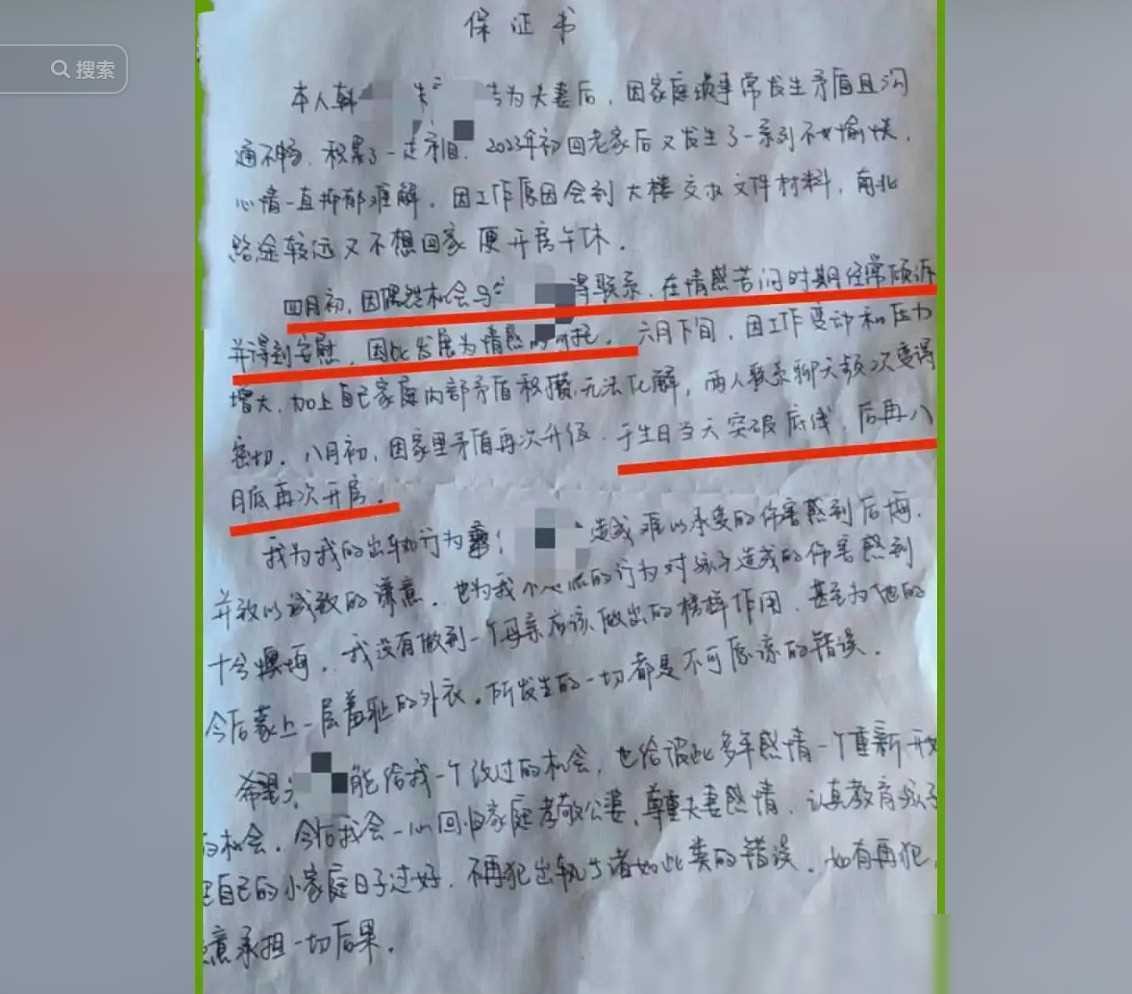 搜索
保证书
本人韩 为夫妻后，因家庭琐事常发生矛盾且沟
通不畅，积累了一定矛盾。2023年初回老家后又发生了一系列不愉快，
心情一直抑郁难解。因工作原因会到大楼交求文件材料，南北
路途较远又不想回家便开房午休。
四月初，因偶然机会与 得联系，在情感苦闷时期经常倾诉
并得到安慰，因此发展为情感的寄托。六月下旬，因工作变动和压力
增大，加上自己家庭内部矛盾积攒，无法化解，两人联系聊天频次变得
密切。八月初，因家里矛盾再次升级，于生日当天突破底线，后再八
月底再次开房。
我为我的出轨行为 造成难以承受的伤害感到后悔，
并致以诚致的谦意，也为我不 的行为对孩子造成的伤害感到
十分懊悔，我没有做到一个母亲应该做出的榜样作用，甚至为他的
今后蒙上一层羞耻的外衣。所发生的一切都是不可原谅的错误。
希望 能给我一个改过的机会，也给彼此多年感情一个重新开
的机会，今后我会一心回归家庭孝敬公婆，尊重夫妻感情，认真教育孩子
把自己的小家庭日子过好，不再犯出轨 诸如此类的错误。如有再犯，
愿意承担一切后果。